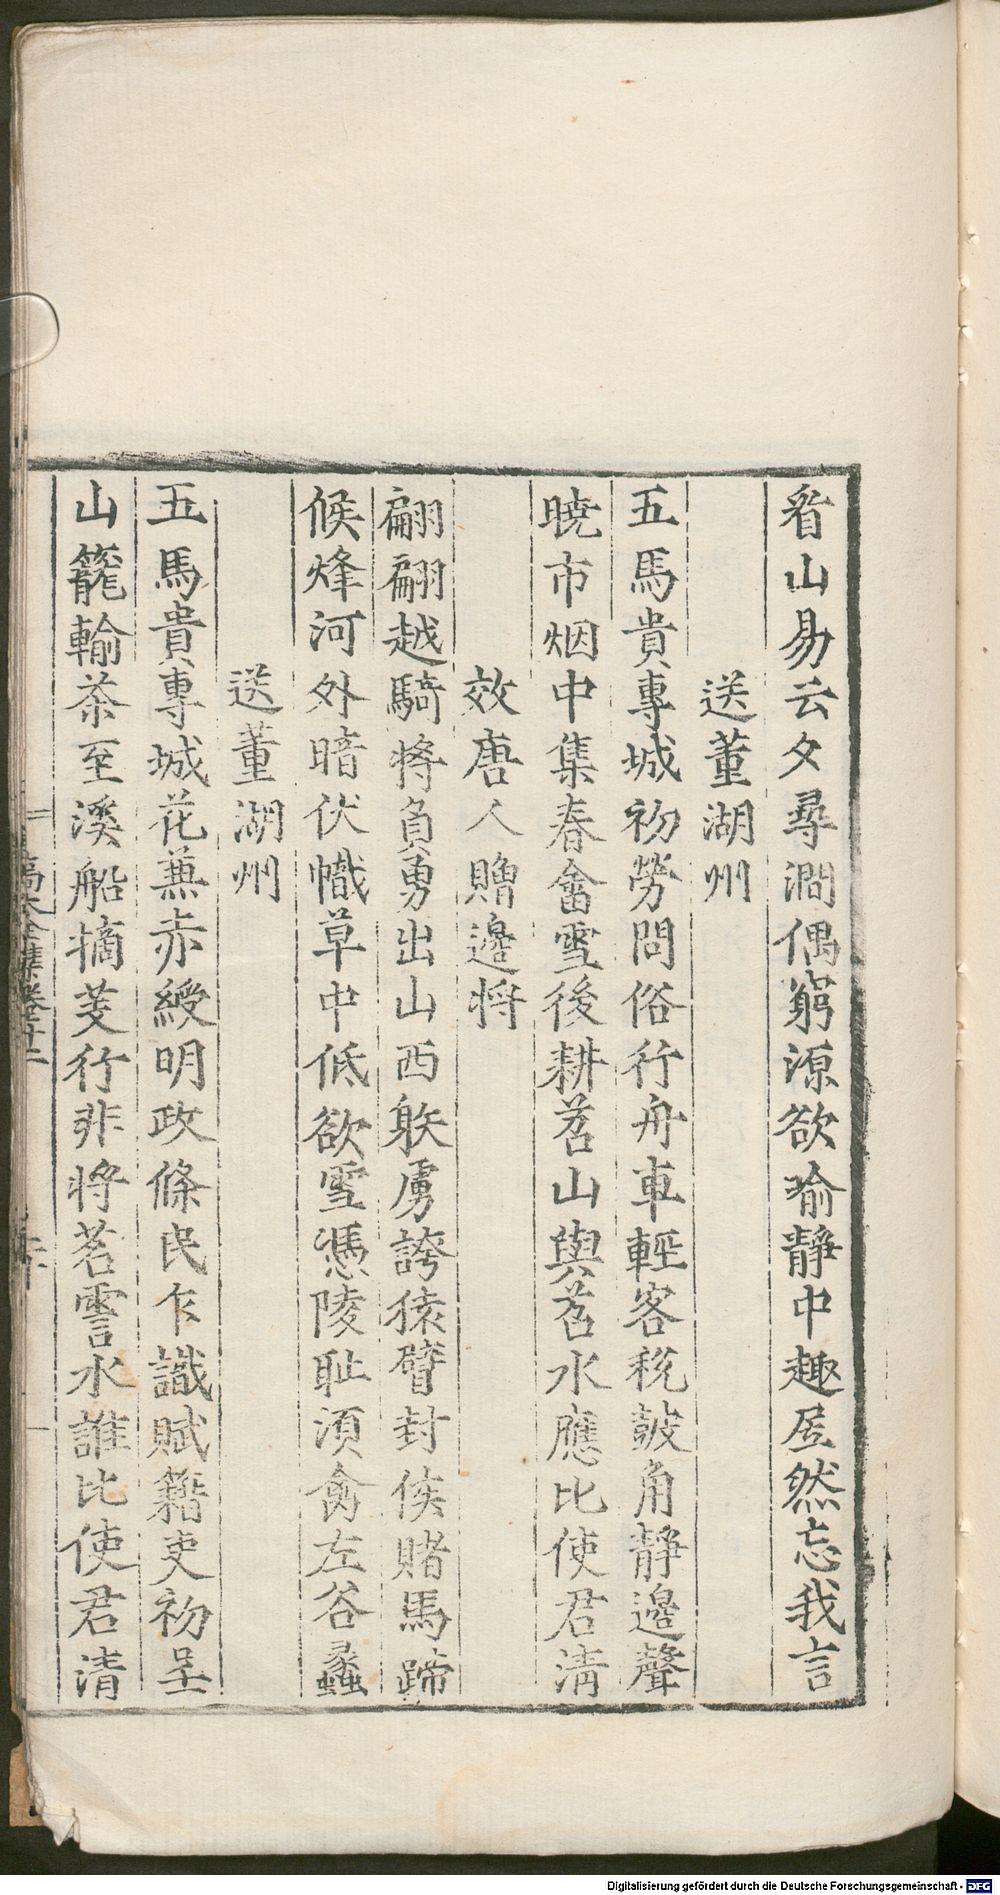 看山易云夕尋澗偶窮源欲喻靜中趣居然忘我言
送董湖州
五馬貴專城初勞問俗行舟車輕客稅皷角靜邊聲
曉市烟中集春畬雪後耕若山與苕水應比使君清
效唐人贈邊將
翩翩越騎將負勇出山西躲虜誇猿臂封侯賭馬蹄
候烽河外暗伏幟草中低欲雪憑陵恥須禽左谷蠡
送董湖州
五馬貴專城花蕪赤綬明政條民乍識賦籍吏初呈
山籠輸茶至溪船摘芰行非將苕霅水誰比使君清
高太全集卷十二
Digitalisierung gefördert durch die Deutsche Forschungsgemeinschaft - DFG